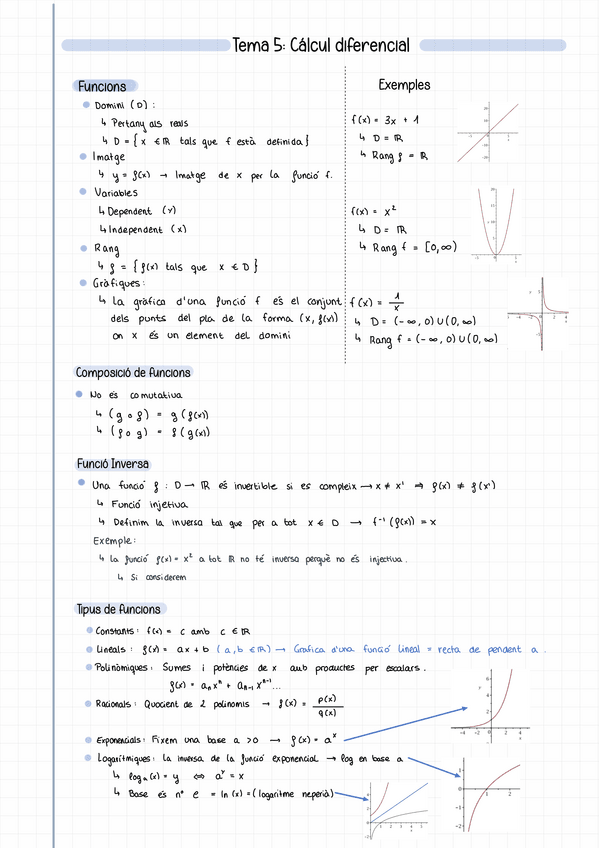 Tema 5: Cálcul diferencial
Funcions
Domini (D) :
↳ Pertany als reals
↳ D = { x ∈ ℝ tals que f està definida}
Imatge
↳ y = f(x) → Imatge de x per la funció f.
Variables
↳ Dependent (y)
↳ Independent (x)
Rang
↳ f = { f(x) tals que x ∈ D }
Gràfiques:
↳ La gràfica d'una funció f és el conjunt
dels punts del pla de la forma (x, f(x))
on x és un element del domini
Exemples
f(x) = 3x + 1
↳ D = ℝ
↳ Rang f = ℝ
f(x) = x²
↳ D = ℝ
↳ Rang f = [0, ∞)
f(x) = 1/x
↳ D = (-∞, 0) U (0, ∞)
↳ Rang f = (-∞, 0) U (0, ∞)
Composició de funcions
No és commutativa
↳ (g ∘ f) = g(f(x))
↳ (f ∘ g) = f(g(x))
Funció Inversa
Una funció f : D → ℝ és invertible si es compleix → x ≠ x' ⇒ f(x) ≠ f(x')
↳ Funció injetiva
↳ Definim la inversa tal que per a tot x ∈ D → f⁻¹ (f(x)) = x
Exemple:
↳ La funció f(x) = x² a tot ℝ no té inversa perquè no és injectiva.
↳ Si considerem
Tipus de funcions
Constants: f(x) = c amb c ∈ ℝ
Lineals: f(x) = ax + b (a, b ∈ ℝ) → Gràfica d'una funció lineal = recta de pendent a.
Polinòmiques: Sumes i potències de x amb productes per escalars.
f(x) = aₙxⁿ + aₙ₋₁xⁿ⁻¹...
Racionals: Quocient de 2 polinomis → f(x) = p(x)/q(x)
Exponencials: Fixem una base a >0 → f(x) = aˣ
Logarítmiques: la inversa de la funció exponencial → log en base a
↳ logₐ(x) = y ⇔ aʸ = x
↳ Base és nº e = ln (x) = (logaritme neperià)